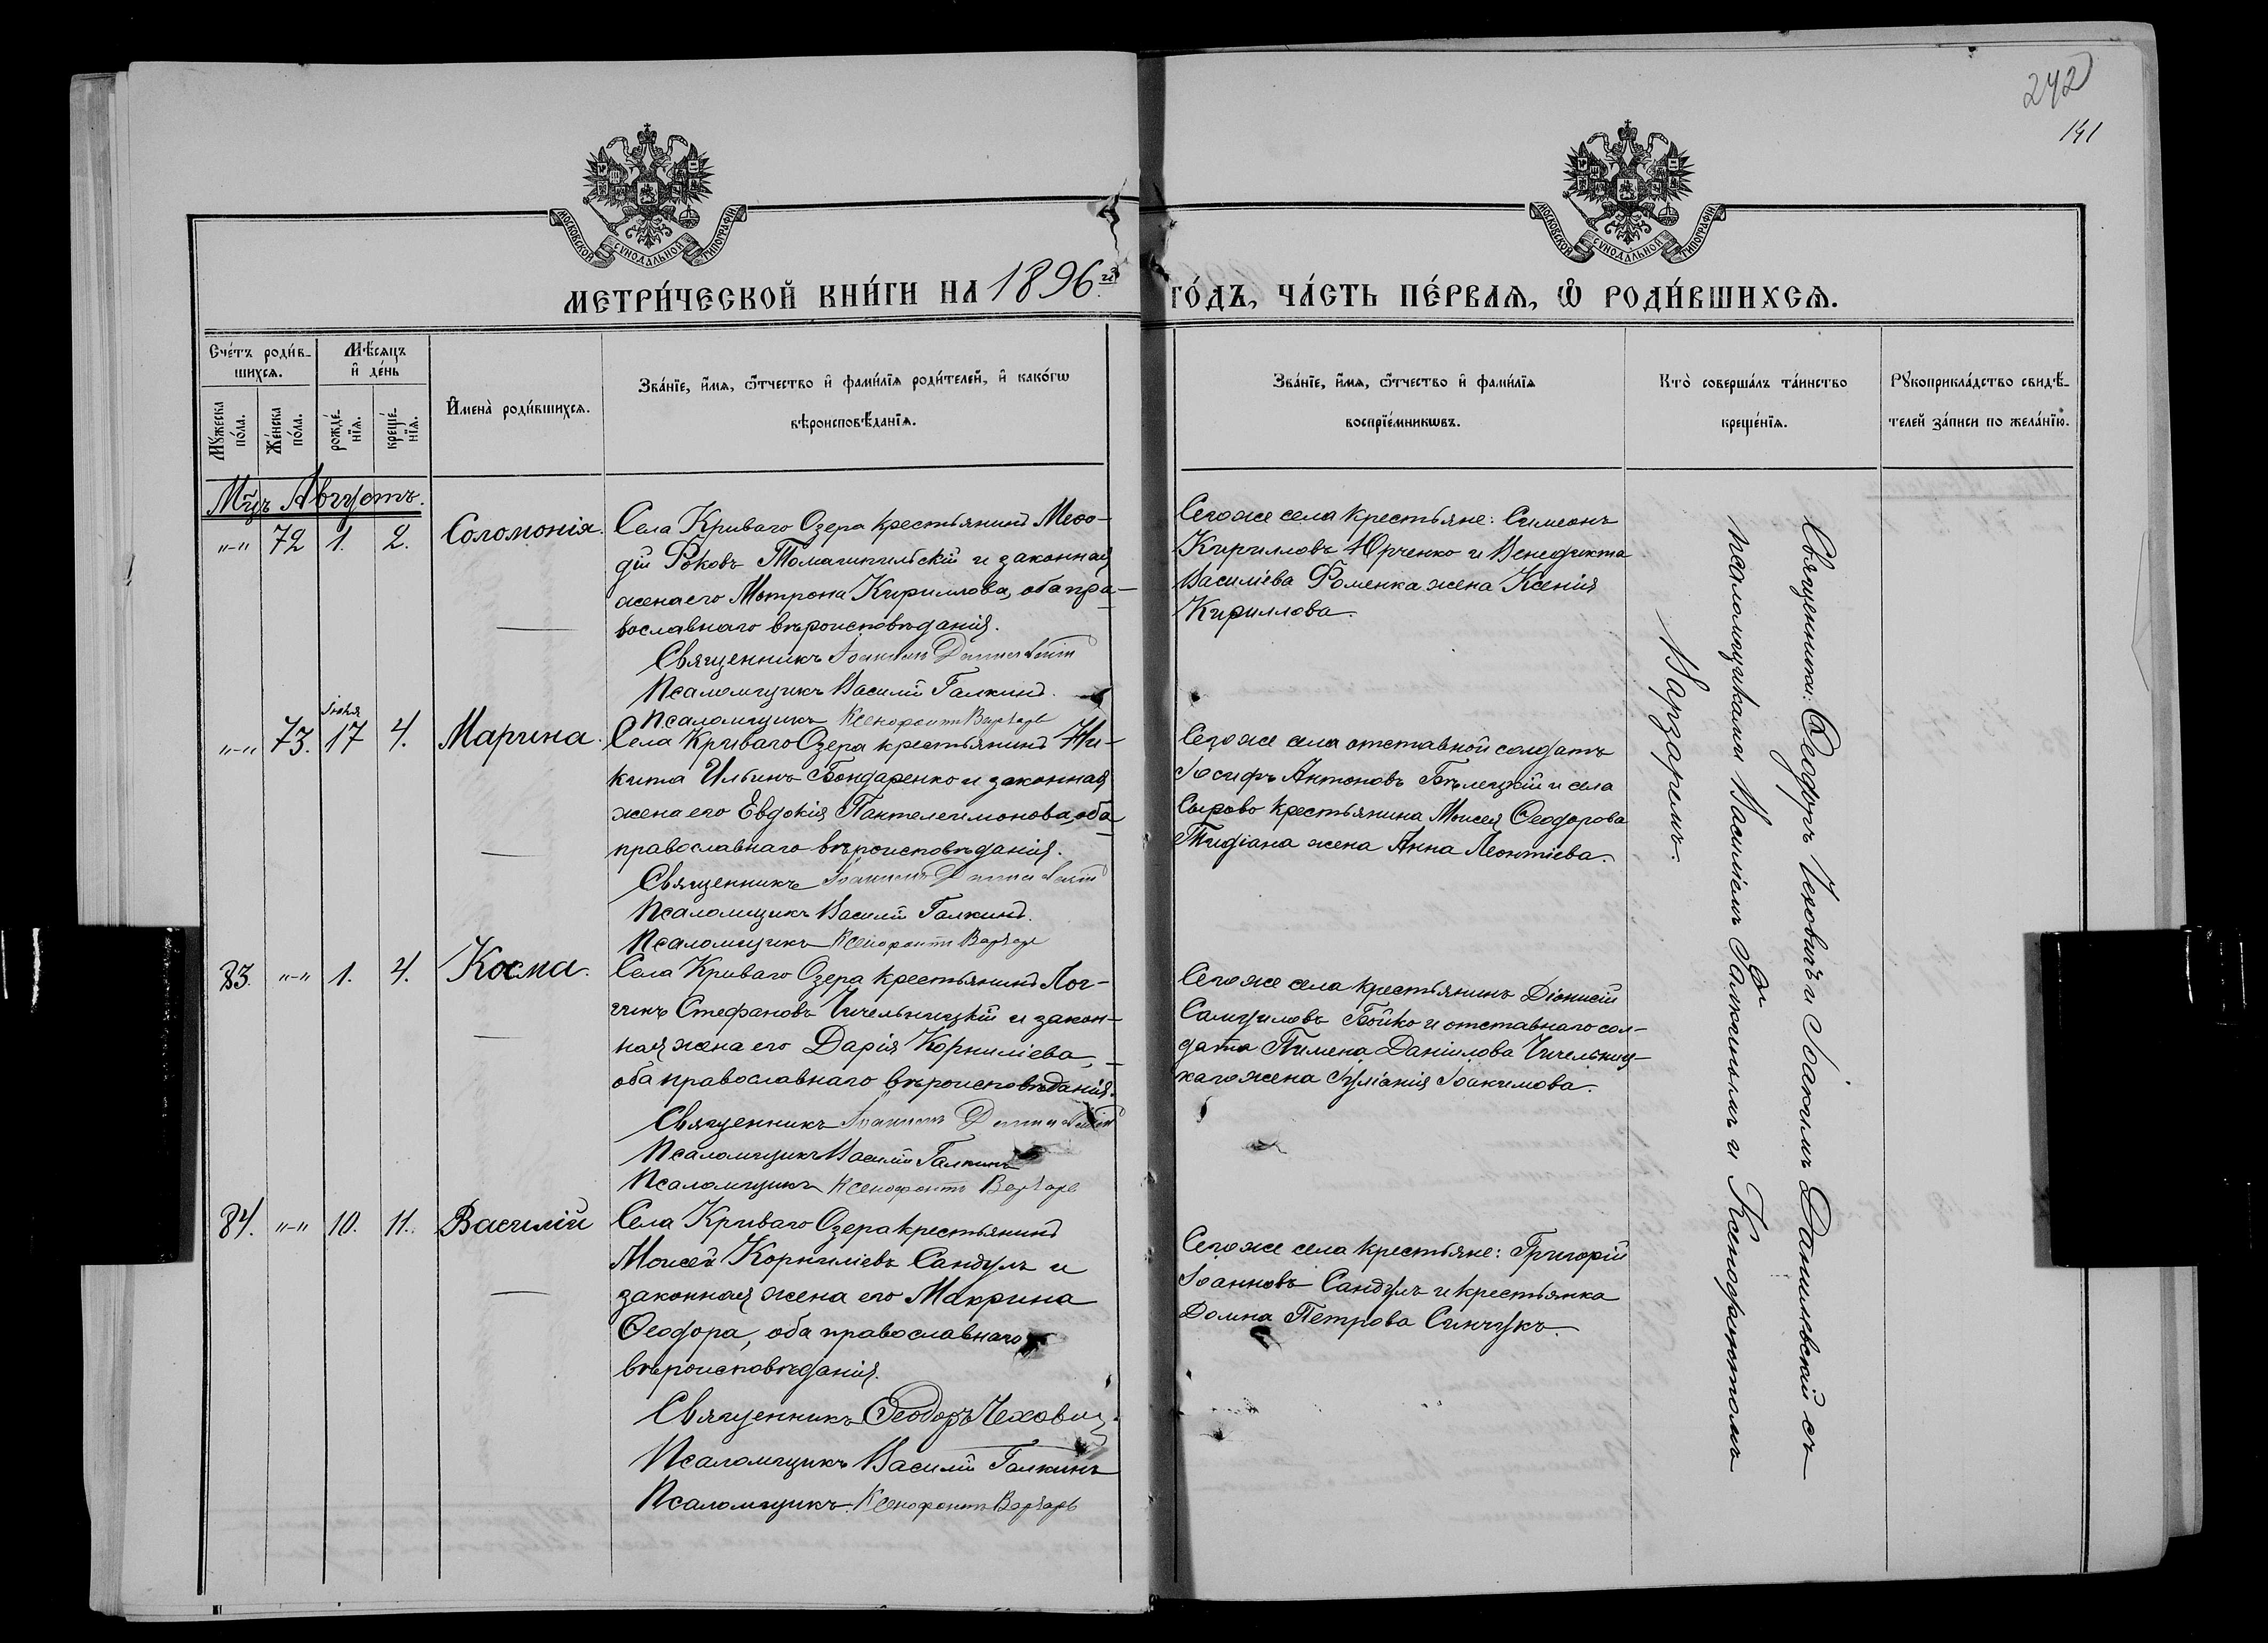 242
141
МОСКОВСКОЙ СУНОДАЛЬНОЙ ТИПОГРАФІИ
МОСКОВСКОЙ СУНОДАЛЬНОЙ ТИПОГРАФІИ
МЕТРИ́ЧЕСКОЙ КНИ́ГИ НА 1896й ГО́ДЪ, ЧА́СТЬ ПЕ́РВАѦ, Ѽ РОДИ́ВШИХСѦ.
Сче́тъ роди́в-
шихсѧ.
Мѣ́сѧцъ
и҆ де́нь
Мꙋ́жеска
по́ла.
Же́нска
по́ла.
рожде́-
нїѧ.
креще́-
нїѧ.
И҆мена̀ роди́вшихсѧ.
Зва́нїе, и҆́мѧ, ѻ҆́тчество и҆ фами́лїѧ роди́телей, и҆ како́гѡ
вѣроисповѣ́данїѧ.
Зва́нїе, и҆́мѧ, ѻ҆́тчество и҆ фами́лїѧ
воспрїе́мникѡвъ.
Кто̀ соверша́лъ та́инство
креще́нїѧ.
Рꙋкоприкла́дство свидѣ́-
телей за́писи по жела́нїю.
Мцъ Августъ.
"-" 72 1. 2. Соломонія.
Села Криваго Озера крестьянинъ Меѳо-
дій Роковъ Томашпильскій и законная
жена его Мотрона Кириллова, оба пра-
вославнаго вѣроисповѣданія.
Священникъ Іоакимъ Данилевскій
Псаломщикъ Василій Галкинъ.
Псаломщикъ Ксенофонтъ Варзарь
Сего же села крестьяне: Симеонъ
Кирилловъ Юрченко и Венедикта
Василіева Роменка жена Ксенія
Кириллова.
"-" 73. Іюля 17 4. Марина.
Села Криваго Озера крестьянинъ Ни-
кита Ильинъ Бондаренко и законная
жена его Евдокія Пантелеимонова, оба
православнаго вѣроисповѣданія.
Священникъ Іоакимъ Данилевскій
Псаломщикъ Василій Галкинъ.
Псаломщикъ Ксенофонтъ Варзарь
Сего же села отставной солдатъ
Іосифъ Антоновъ Бѣлецкій и села
Сырово крестьянина Моисея Ѳеодорова
Тидіана жена Анна Леонтіева.
83. "-" 1. 4. Косма.
Села Криваго Озера крестьянинъ Лог-
гинъ Стефановъ Чичельницкій и закон-
ная жена его Дарія Корниліева,
оба православнаго вѣроисповѣданія.
Священникъ Іоакимъ Данилевскій
Псаломщикъ Василій Галкинъ
Псаломщикъ Ксенофонтъ Варзарь
Сего же села крестьянинъ Діонисій
Самуиловъ Бойко и отставнаго сол-
дата Пимена Даніилова Чичельниц-
каго жена Іуліанія Іоакимова.
84. "-" 10. 11. Василій
Села Криваго Озера крестьянинъ
Моисей Корниліевъ Сандулъ и
законная жена его Макрина
Ѳеодора, оба православнаго
вѣроисповѣданія.
Священникъ Ѳеодоръ Чехович
Псаломщикъ Василій Галкинъ
Псаломщикъ Ксенофонтъ Варзарь
Сего же села крестьяне: Григорій
Іоанновъ Сандулъ и крестьянка
Домна Петрова Синчукъ.
Священники: Ѳеодоръ Чеховичъ и Іоакимъ Данилевскій съ
псаломщиками Василіемъ Галкинымъ и Ксенофонтомъ
Варзаремъ.